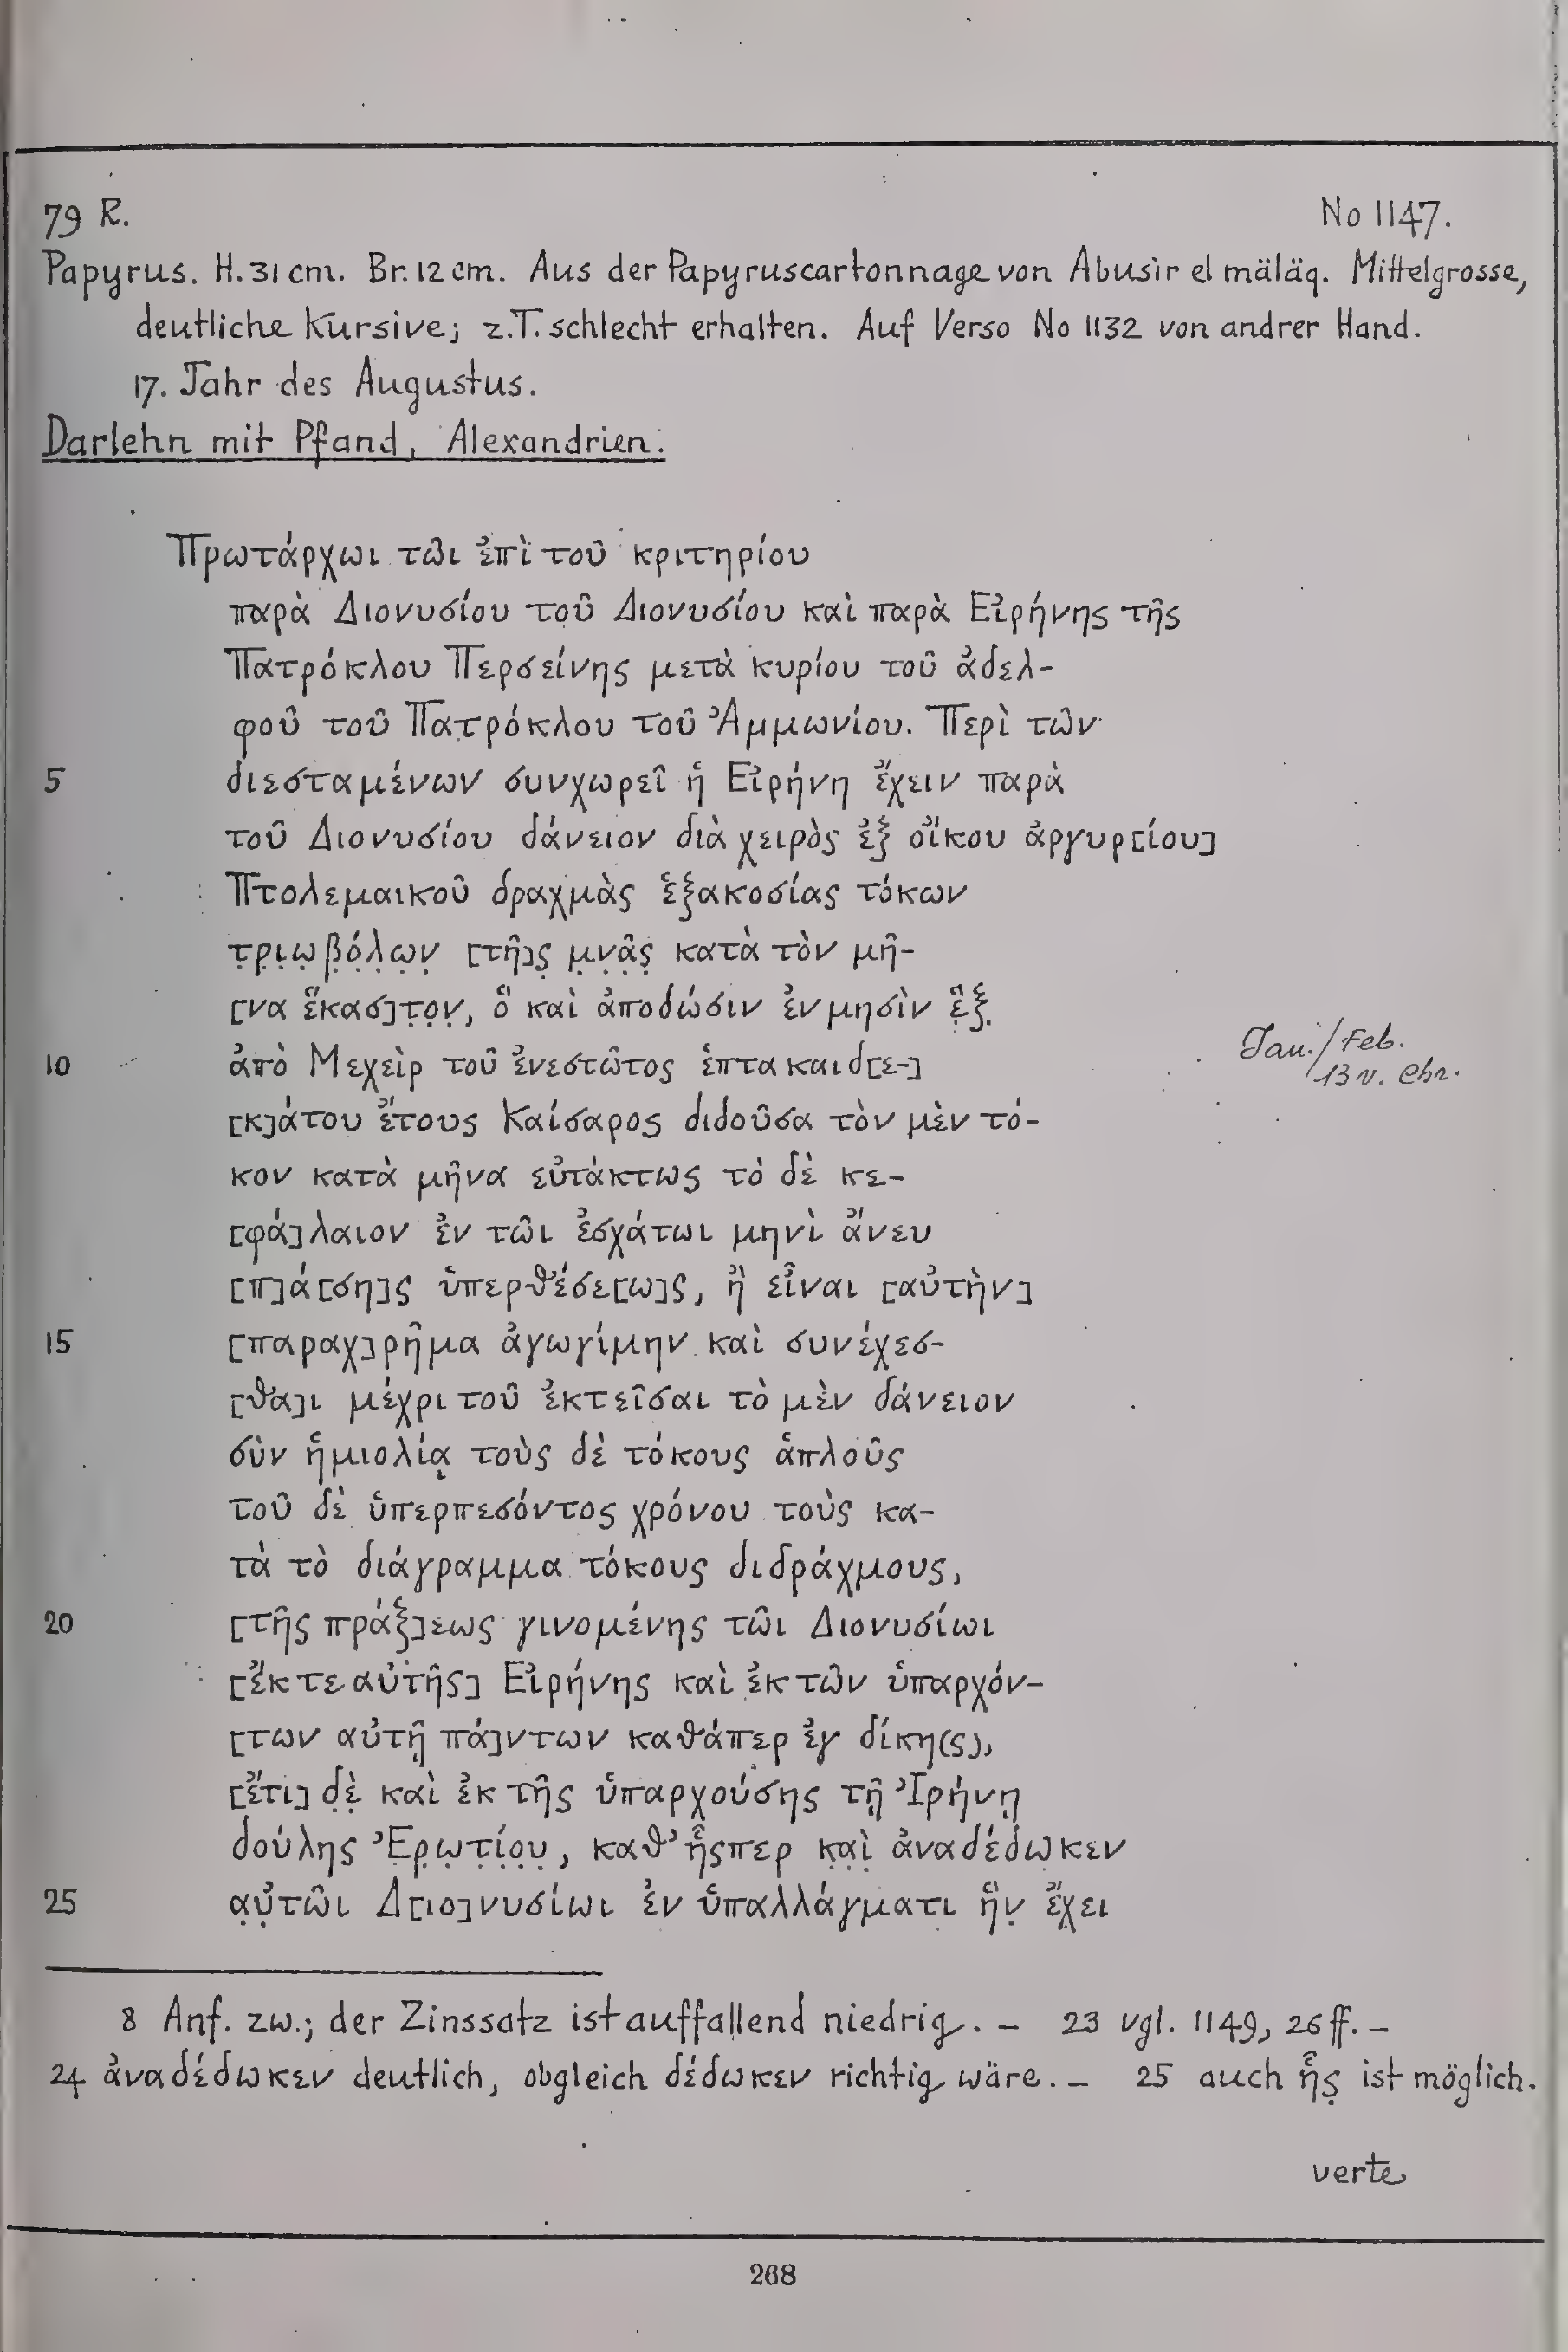 79 R. No 1147.
Papyrus. H. 31 cm. Br. 12 cm. Aus der Papyruscartonnage von Abusir el mäläq. Mittelgrosse,
deutliche Kursive; z.T. schlecht erhalten. Auf Verso No 1132 von andrer Hand.
17. Jahr des Augustus.
Darlehn mit Pfand, Alexandrien.
Πρωτάρχωι τῶι ἐπὶ τοῦ κριτηρίου
παρὰ Διονυσίου τοῦ Διονυσίου καὶ παρὰ Εἰρήνης τῆς
Πατρόκλου Περσείνης μετὰ κυρίου τοῦ ἀδελ-
φοῦ τοῦ Πατρόκλου τοῦ Ἀμμωνίου. Περὶ τῶν
5 διεσταμένων συνχωρεῖ ἡ Εἰρήνη ἔχειν παρὰ
τοῦ Διονυσίου δάνειον διὰ χειρὸς ἐξ οἴκου ἀργυρ[ίου]
Πτολεμαικοῦ δραχμὰς ἑξακοσίας τόκων
τ̣ρ̣ι̣ω̣β̣ό̣λ̣ω̣ν̣ [τῆ]ς̣ μ̣ν̣ᾶ̣ς̣ κατὰ τὸν μῆ-
[να ἕκασ]τ̣ο̣ν̣, ὃ καὶ ἀποδώσιν ἐν μησὶν ἓ̣ξ̣
10 ἀπὸ Μεχεὶρ τοῦ ἐνεστῶτος ἑπτακαιδ[ε-]
Jan./Feb.
13 v. Chr.
[κ]άτου ἔτους Καίσαρος διδοῦσα τὸν μὲν τό-
κον κατὰ μῆνα εὐτάκτως τὸ δὲ κε-
[φά]λαιον ἐν τῶι ἐσχάτωι μηνὶ ἄνευ
[π]ά[ση]ς ὑπερθέσε[ω]ς, ἢ εἶναι [αὐτὴν]
15 [παραχ]ρῆμα ἀγωγίμην καὶ συνέχεσ-
[θα]ι μέχρι τοῦ ἐκτεῖσαι τὸ μὲν δάνειον
σὺν ἡμιολίᾳ τοὺς δὲ τόκους ἁπλοῦς
τοῦ δὲ ὑπερπεσόντος χρόνου τοὺς κα-
τὰ τὸ διάγραμμα τόκους διδράχμους,
20 [τῆς πράξ]εως γινομένης τῶι Διονυσίωι
[ἔκ τε αὐτῆς] Εἰρήνης καὶ ἐκ τῶν ὑπαρχόν-
[των αὐτῇ πά]ντων καθάπερ ἐγ δίκη(ς),
[ἔτι] δ̣ὲ̣ καὶ ἐκ τῆς ὑπαρχούσης τῇ Ἰρήνῃ
δούλης Ἐ̣ρ̣ω̣τ̣ί̣ο̣υ̣, καθ' ἧςπερ κ̣α̣ὶ̣ ἀναδέδω̣κεν
25 α̣ὐ̣τῶι Δ[ιο]νυσίωι ἐν ὑπαλλάγματι ἣν̣ ἔχει
8 Anf. zw.; der Zinssatz ist auffallend niedrig. – 23 vgl. 1149, 26 ff. –
24 ἀναδέδωκεν deutlich, obgleich δέδωκεν richtig wäre. – 25 auch ἧς̣ ist möglich.
verte
268